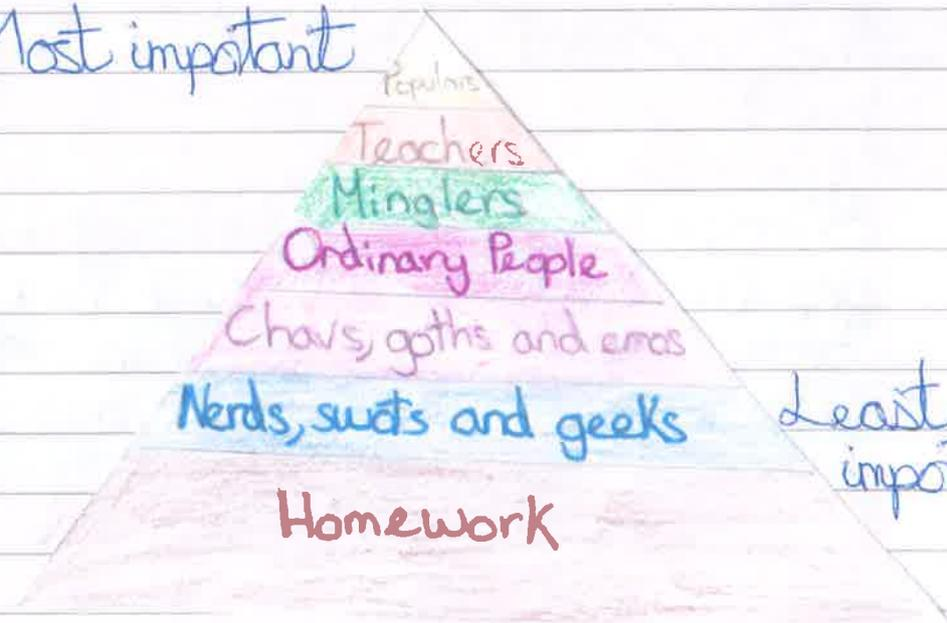 Most important
Populars
Teachers
Minglers
Ordinary People
Chavs, goths and emos
Nerds, swots and geeks
Least
impo
Homework